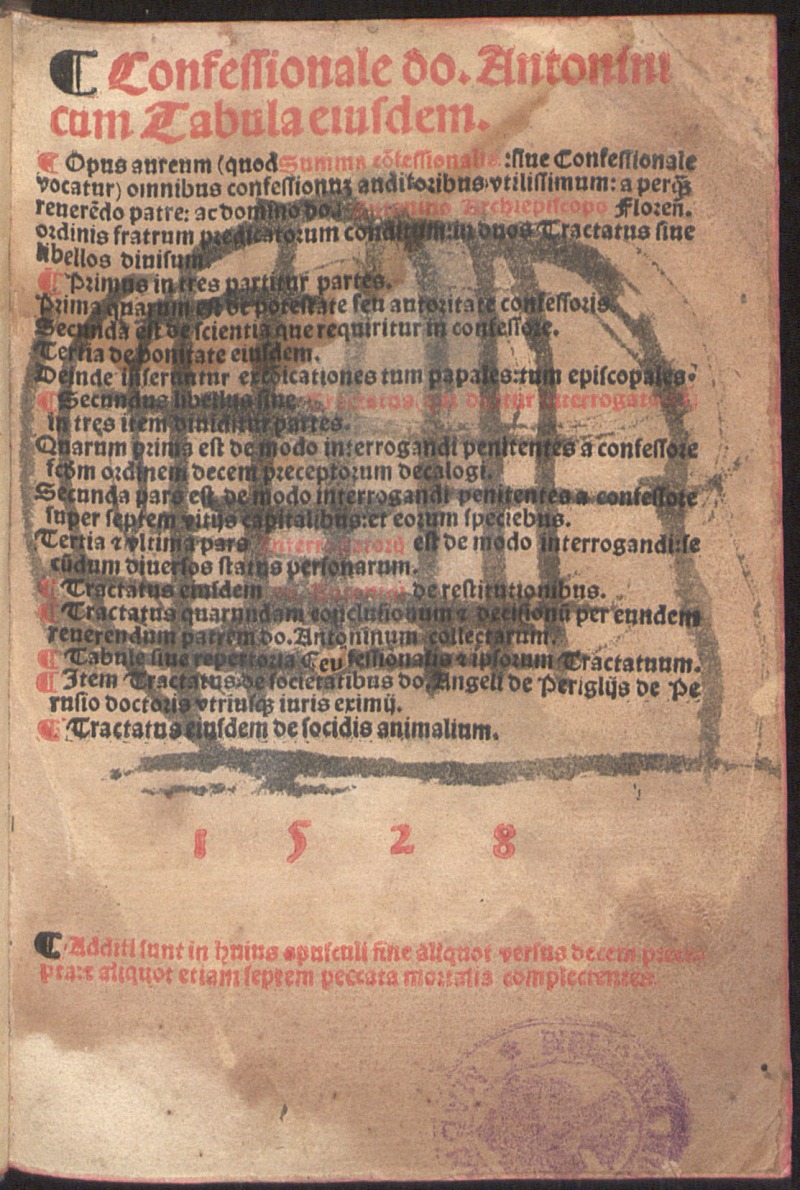 ¶ Confessionale do. Antonini
cum Tabula eiusdem.
¶ Opus aureum (quod Summa cōfessionalis :siue Confessionale
vocatur) omnibus confessionuꝫ auditoribus vtilissimum: a perqͣꝫ
reuerēdo patre: ac domino do. Antonino Archiepiscopo Floreñ.
ordinis fratrum predicatorum conditum: in duos Tractatus siue
libellos diuisum.
¶ Primus in tres partitur partes.
Prima quarum est de potestate seu autoritate confessoris.
Secunda est de scientia que requiritur in confessore.
Tertia de bonitate eiusdem.
Deinde inseruntur excōicationes tum papales: tum episcopales.
¶ Secundus libellus siue Tractatus dicitur
in tres item diuiditur partes.
Quarum prima est de modo interrogandi penitentes a confessore
scḋm ordinem decem preceptorum decalogi.
Secunda pars est de modo interrogandi penitentes a confessore
super septem vitijs capitalibus: et eorum speciebus.
Tertia ⁊ vltima pars Interrogatorij est de modo interrogandi: se
cūdum diuersos status personarum.
¶ Tractatus eiusdem de restitutionibus.
¶ Tractatus quarundam conclusionum ⁊ decisionū per eundem
reuerendum patrem do. Antoninum collectarum.
¶ Tabule siue repertoria Cōfessionalis ⁊ ipsorum Tractatuum.
¶ Item Tractatus de societatibus do. Angeli de Periglijs de Pe
rusio doctoris vtriusqꝫ iuris eximij.
¶ Tractatus eiusdem de socidis animalium.
1 5 2 8
¶ Additi sunt in huius opusculi fine aliquot versus decem prece
pta: ⁊ aliquot etiam septem peccata mortalia complectentes.